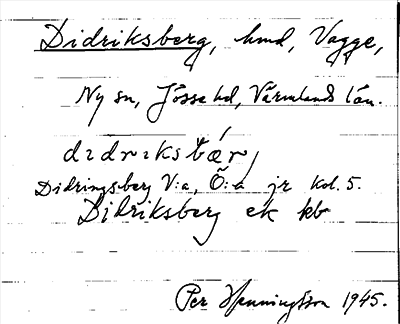 Didriksberg, hmd, Vagge,
Ny sn, Jösse hd, Värmlands län.
dıdrıksbær,
Didringsberg V:a, Ö:a jr kol. 5.
Didriksberg ek kb
Per Henningsson 1945.